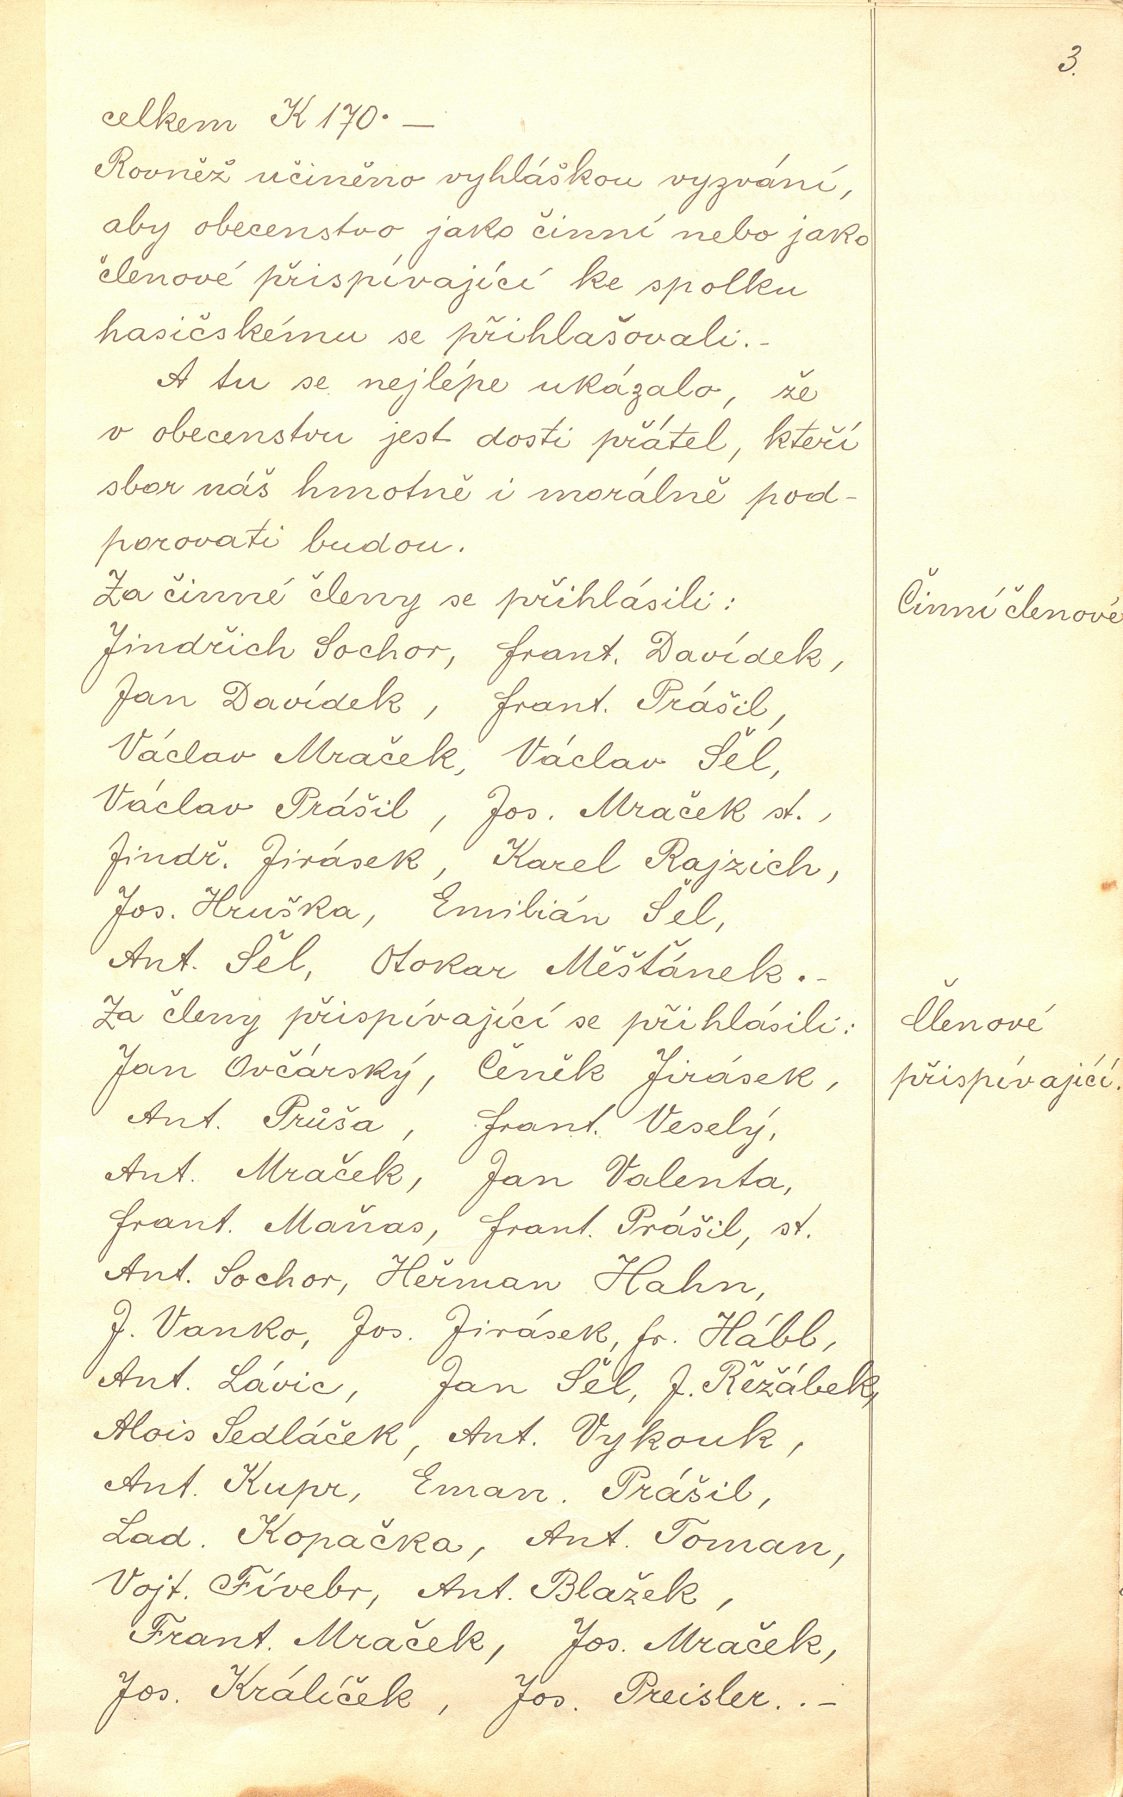 3.
celkem K 170·—
Rovněž učiněno vyhláškou vyzvání,
aby obecenstvo jako činní nebo jako
členové přispívající ke spolku
hasičskému se přihlašovali.-
A tu se nejlépe ukázalo, že
v obecenstvu jest dosti přátel, kteří
sbor náš hmotně i morálně pod-
porovati budou.
Za činné členy se přihlásili:
Činní členové
Jindřich Sochor, Frant. Davídek,
Jan Davídek, Frant. Prášil,
Václav Mraček, Václav Šél,
Václav Prášil, Jos. Mraček st.,
Jindř. Jirásek, Karel Rajzich,
Jos. Hruška, Emilián Šél,
Ant. Šél, Otokar Měšťánek.-
Za členy přispívající se přihlásili:
Členové
přispívající.
Jan Ovčárský, Čeněk Jirásek,
Ant. Průša, Frant. Veselý,
Ant. Mraček, Jan Valenta,
Frant. Maňas, Frant. Prášil, st.
Ant. Sochor, Heřman Hahn,
J. Vanko, Jos. Jirásek, Fr. Hábl,
Ant. Lávic, Jan Šél, J. Řěžábek,
Alois Sedláček, Ant. Vykouk,
Ant. Kupr, Eman. Prášil,
Lad. Kopačka, Ant. Toman,
Vojt. Fívebr, Ant. Blažek,
Frant. Mraček, Jos. Mraček,
Jos. Králíček, Jos. Preisler..-